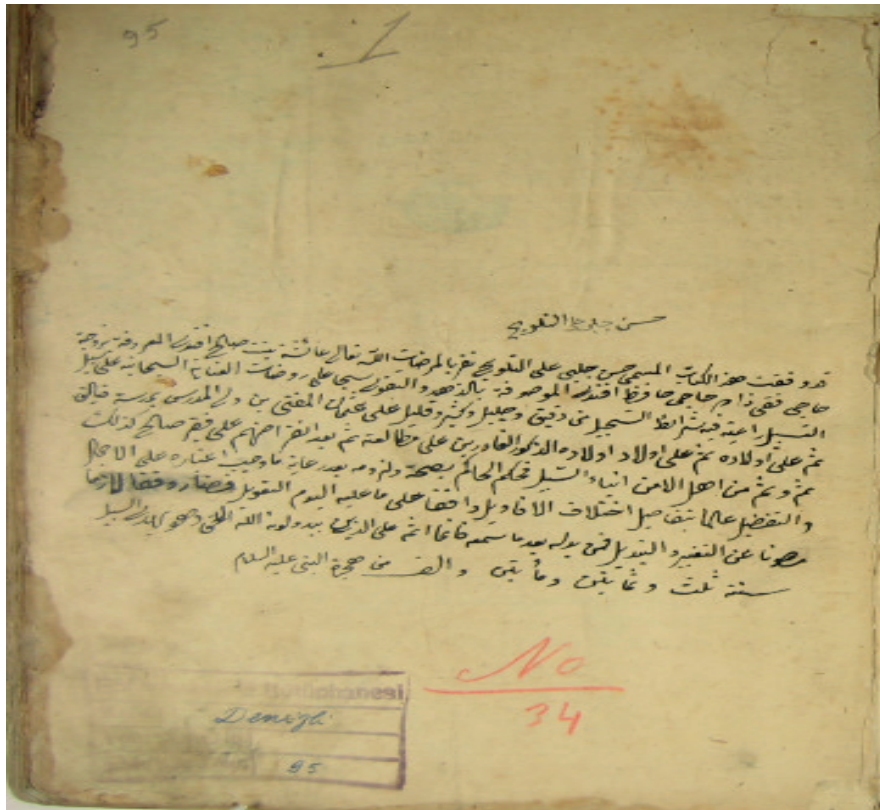 95
1
حسن جلبى على التلويح
قد وقفت هذا الكتاب المسمى حسن جلبى على التلويح تقربا لمرضات الله تعالى عائشة بنت صالح افندى المعروفة بزوجة
حاجى حافظ افندى الموصوفة بالزهد والتقوى على روضات العناية السبحانية على سبيل
التسبيل راعية فيه شرائط التسجيل من دقيق وجليل وكثير وقليل على عثمان المفتى بن ولى المدرس بمدرسة
ثم على اولاده ثم على اولاد اولاده الذكور القادرين على مطالعته ثم بعد انقراضهم على فقير صالح كذلك
ثم وثم من اهل الحاكم بصحة ولزومه بعد رعاية ما وجب اعتباره على الاجمال
والتفضيل عالما بتفاصيل اختلاف الاقاويل واقفا على ما عليه اليوم التعويل فصار وقفا لازما
مصونا عن التغيير والتبديل فمن بدله بعد ما سمعه فانما اثمه على الذين يبدلونه
سنة ثلث وثمانين ومأتين والف من هجرة النبى عليه السلام
No
34
Kütüphanesi
Denizli
95